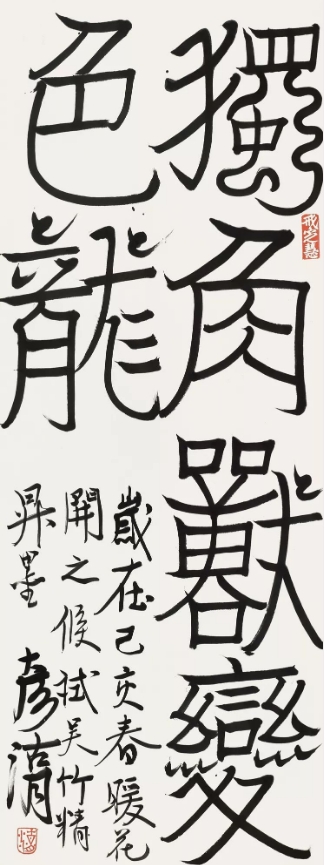 獨角獸變
色龍
歲在己亥春暖花
開之候試吳竹精
昇墨 彥清